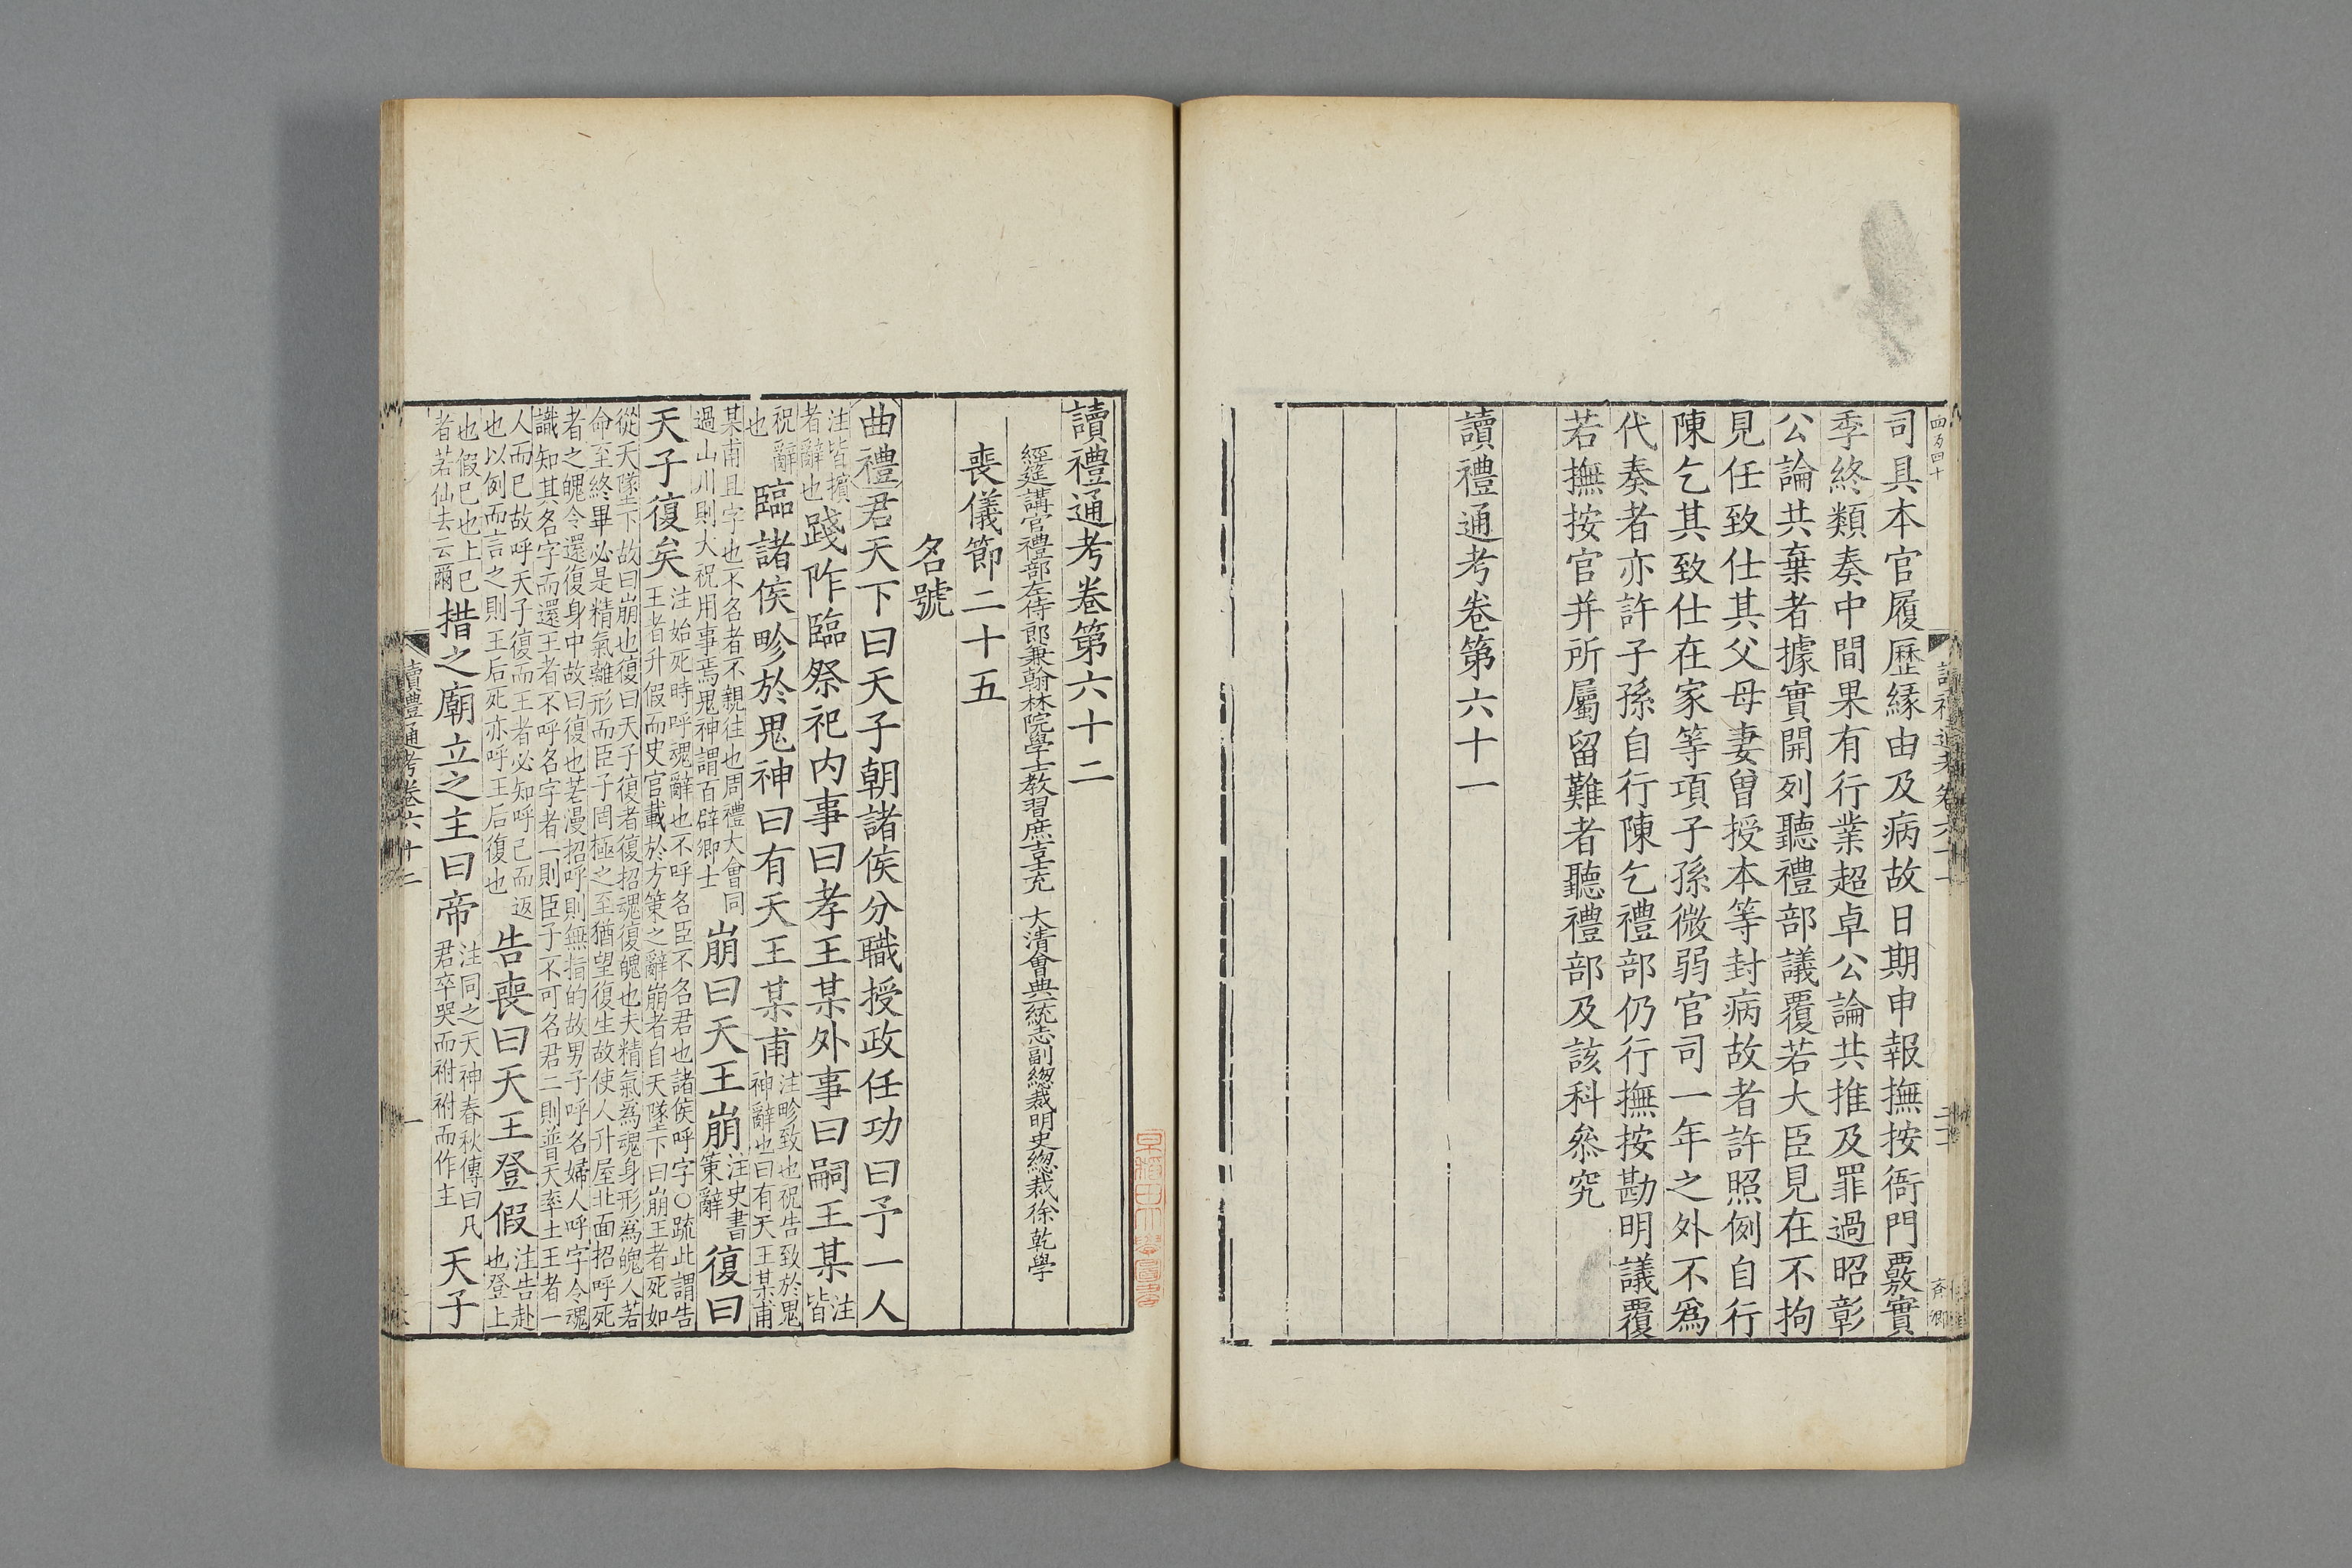 司具本官履歷緣由及病故日期申報撫按衙門覈實
季終類奏中間果有行業超卓公論共推及罪過昭彰
公論共棄者據實開列聽禮部議覆若大臣見在不拘
見任致仕其父母妻曾授本等封病故者許照例自行
陳乞其致仕在家等項子孫微弱官司一年之外不爲
代奏者亦許子孫自行陳乞禮部仍行撫按勘明議覆
若撫按官并所屬留難者聽禮部及該科叅究
讀禮通考卷第六十一
讀禮通考卷第六十二
經筵講官禮部左侍郎兼翰林院學士教習庶吉士充 大清會典一統志副總裁明史總裁徐乾學
喪儀節二十五
名號
曲禮君天下曰天子朝諸侯分職授政任功曰予一人
注皆擯
者辭也
踐阼臨祭祀内事曰孝王某外事曰嗣王某
注
皆
祝辭
也
臨諸侯畛於鬼神曰有天王某甫
注畛致也祝告致於鬼
神辭也曰有天王某甫
某甫且字也不名者不親往也周禮大會同
過山川則大祝用事焉鬼神謂百辟卿士
崩曰天王崩
注史書
策辭
復曰
天子復矣
注始死時呼魂辭也不呼名臣不名君也諸侯呼字○疏此謂告
王者升假而史官載於方策之辭崩者自天墜下曰崩王者死如
從天墜下故曰崩也復曰天子復者復招魂復魄也夫精氣爲魂身形爲魄人若
命至終畢必是精氣離形而臣子罔極之至猶望復生故使人升屋北面招呼死
者之魄令還復身中故曰復也若漫招呼則無指的故男子呼名婦人呼字令魂
識知其名字而還王者不呼名字者一則臣子不可名君二則普天率土王者一
人而已故呼天子復而王者必知呼己而返
也以例而言之則王后死亦呼王后復也
告喪曰天王登假
注告赴
也登上
也假已也上已
者若仙去云爾
措之廟立之主曰帝
注同之天神春秋傳曰凡
君卒哭而祔祔而作主
天子
讀禮通考卷六十二
一